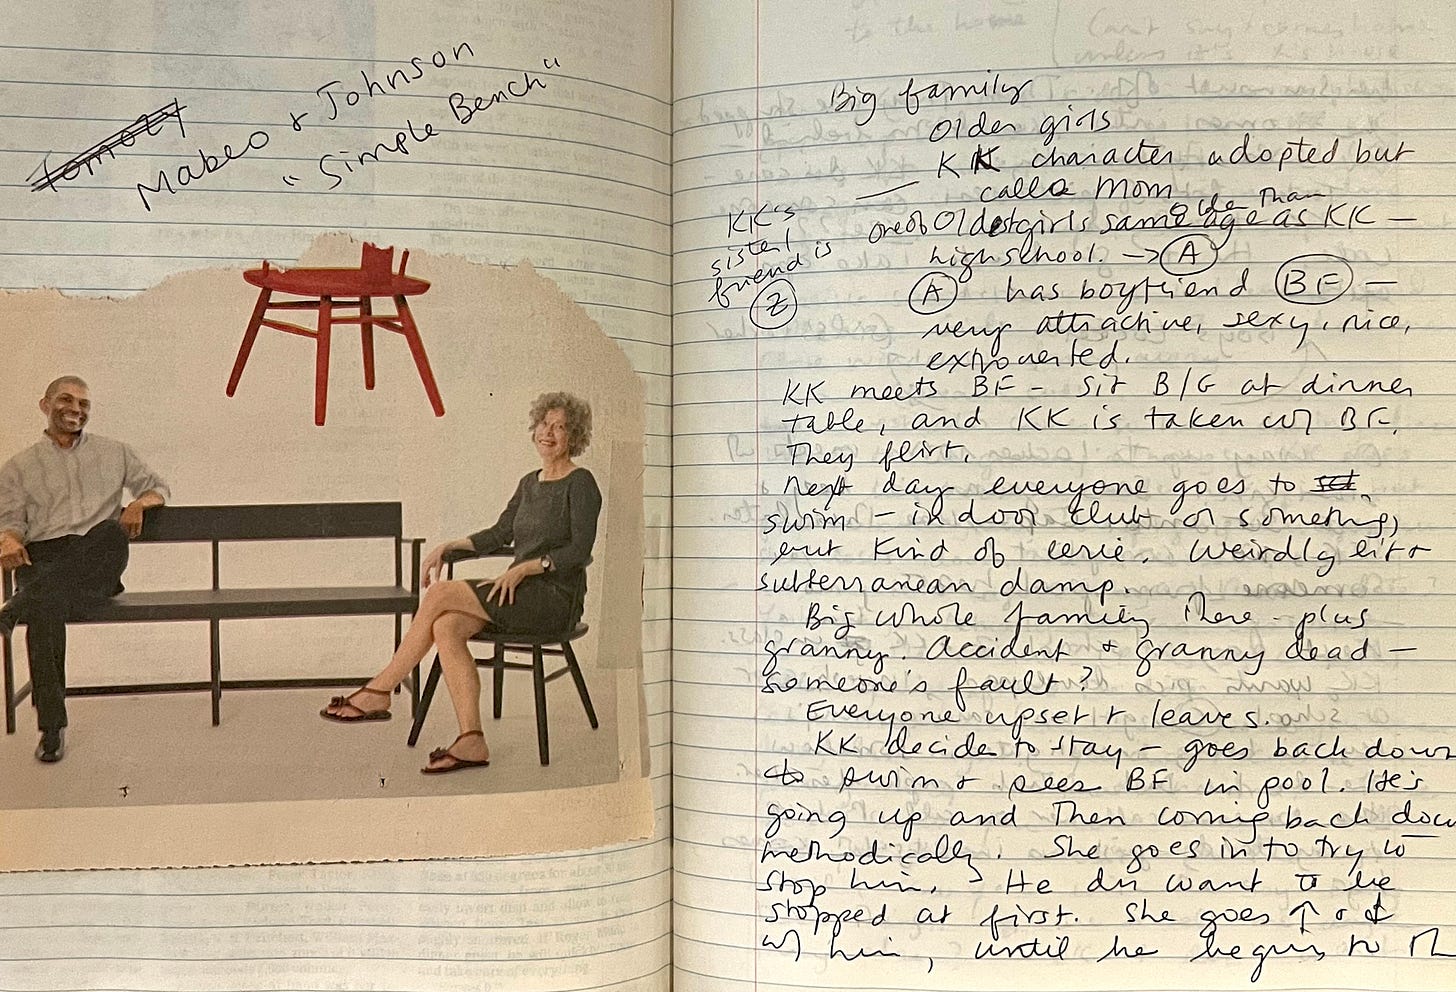 Mabeo + Johnson
"Simple Bench"
Big family
Older girls
KK character adopted but
calls Mom
older than
one of Oldest girls same age as KK —
highschool. → A
KK's
sister/
friend is
Z
A has boyfriend BF —
very attractive, sexy, nice,
extroverted.
KK meets BF – sit B/G at dinner
table, and KK is taken w/ BF.
They flirt.
Next day everyone goes to
swim – indoor club or something,
but kind of eerie. Weirdly lit +
subterranean damp.
Big whole family there – plus
granny. Accident + granny dead —
someone's fault?
Everyone upset + leaves.
KK decides to stay – goes back down
to swim + sees BF in pool. He's
going up and then coming back down
methodically. She goes in to try to
stop him. He din want to be
stopped at first. She goes ↑ + ↓
w/ him, until he begins to